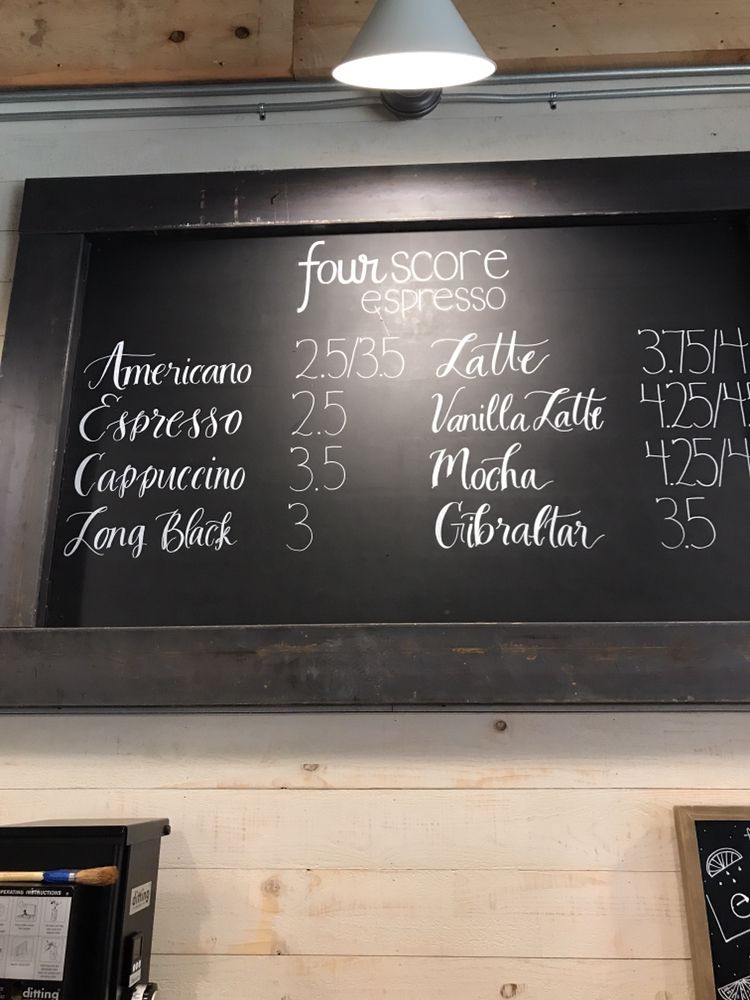 four score
espresso
Americano 2.5/3.5 Latte 3.75/4
Espresso 2.5 Vanilla Latte 4.25/4
Cappuccino 3.5 Mocha 4.25/4
Long Black 3 Gibraltar 3.5
OPERATING INSTRUCTIONS
ditting
ditting
Le